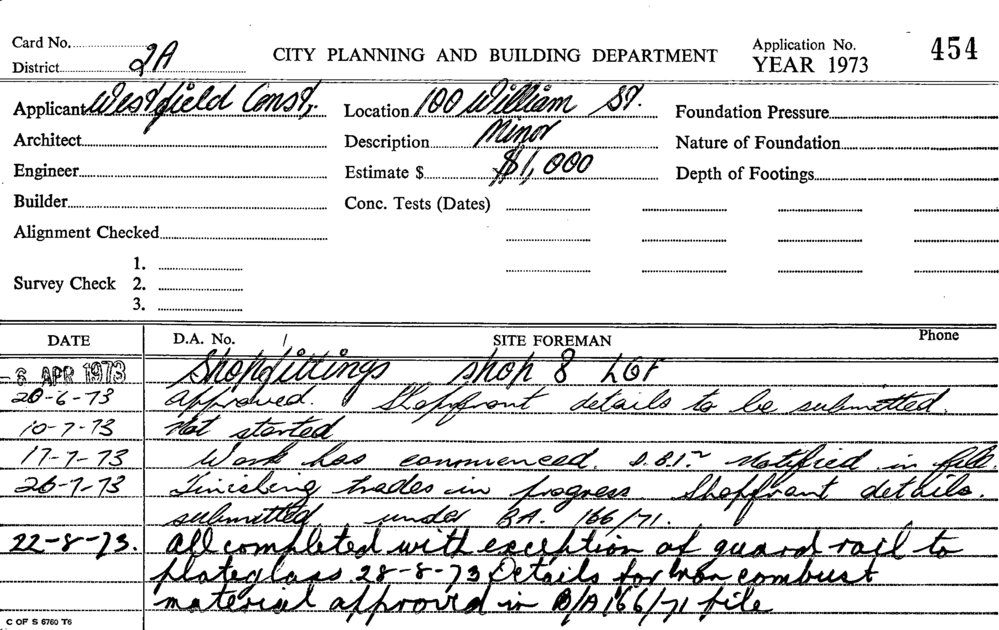 Card No.
District 2A
CITY PLANNING AND BUILDING DEPARTMENT
Application No. 454
YEAR 1973
Applicant Westfield Constr.
Location 100 William St.
Foundation Pressure
Architect
Description Minor
Nature of Foundation
Engineer
Estimate $ $1,000
Depth of Footings
Builder
Conc. Tests (Dates)
Alignment Checked
Survey Check 1.
2.
3.
DATE D.A. No. / SITE FOREMAN Phone
- 6 APR 1973 Shopfittings shop 8 LGF
20-6-73 Approved. Shopfront details to be submitted.
10-7-73 Not started
17-7-73 Work has commenced. Notified in file.
26-7-73 Finishing trades in progress. Shopfront details.
submitted under BA. 166/71.
22-8-73. All completed with exception of guard rail to
plateglass 28-8-73 Details for non combust
material approved in B/A 166/71 file
C OF S 6760 T6